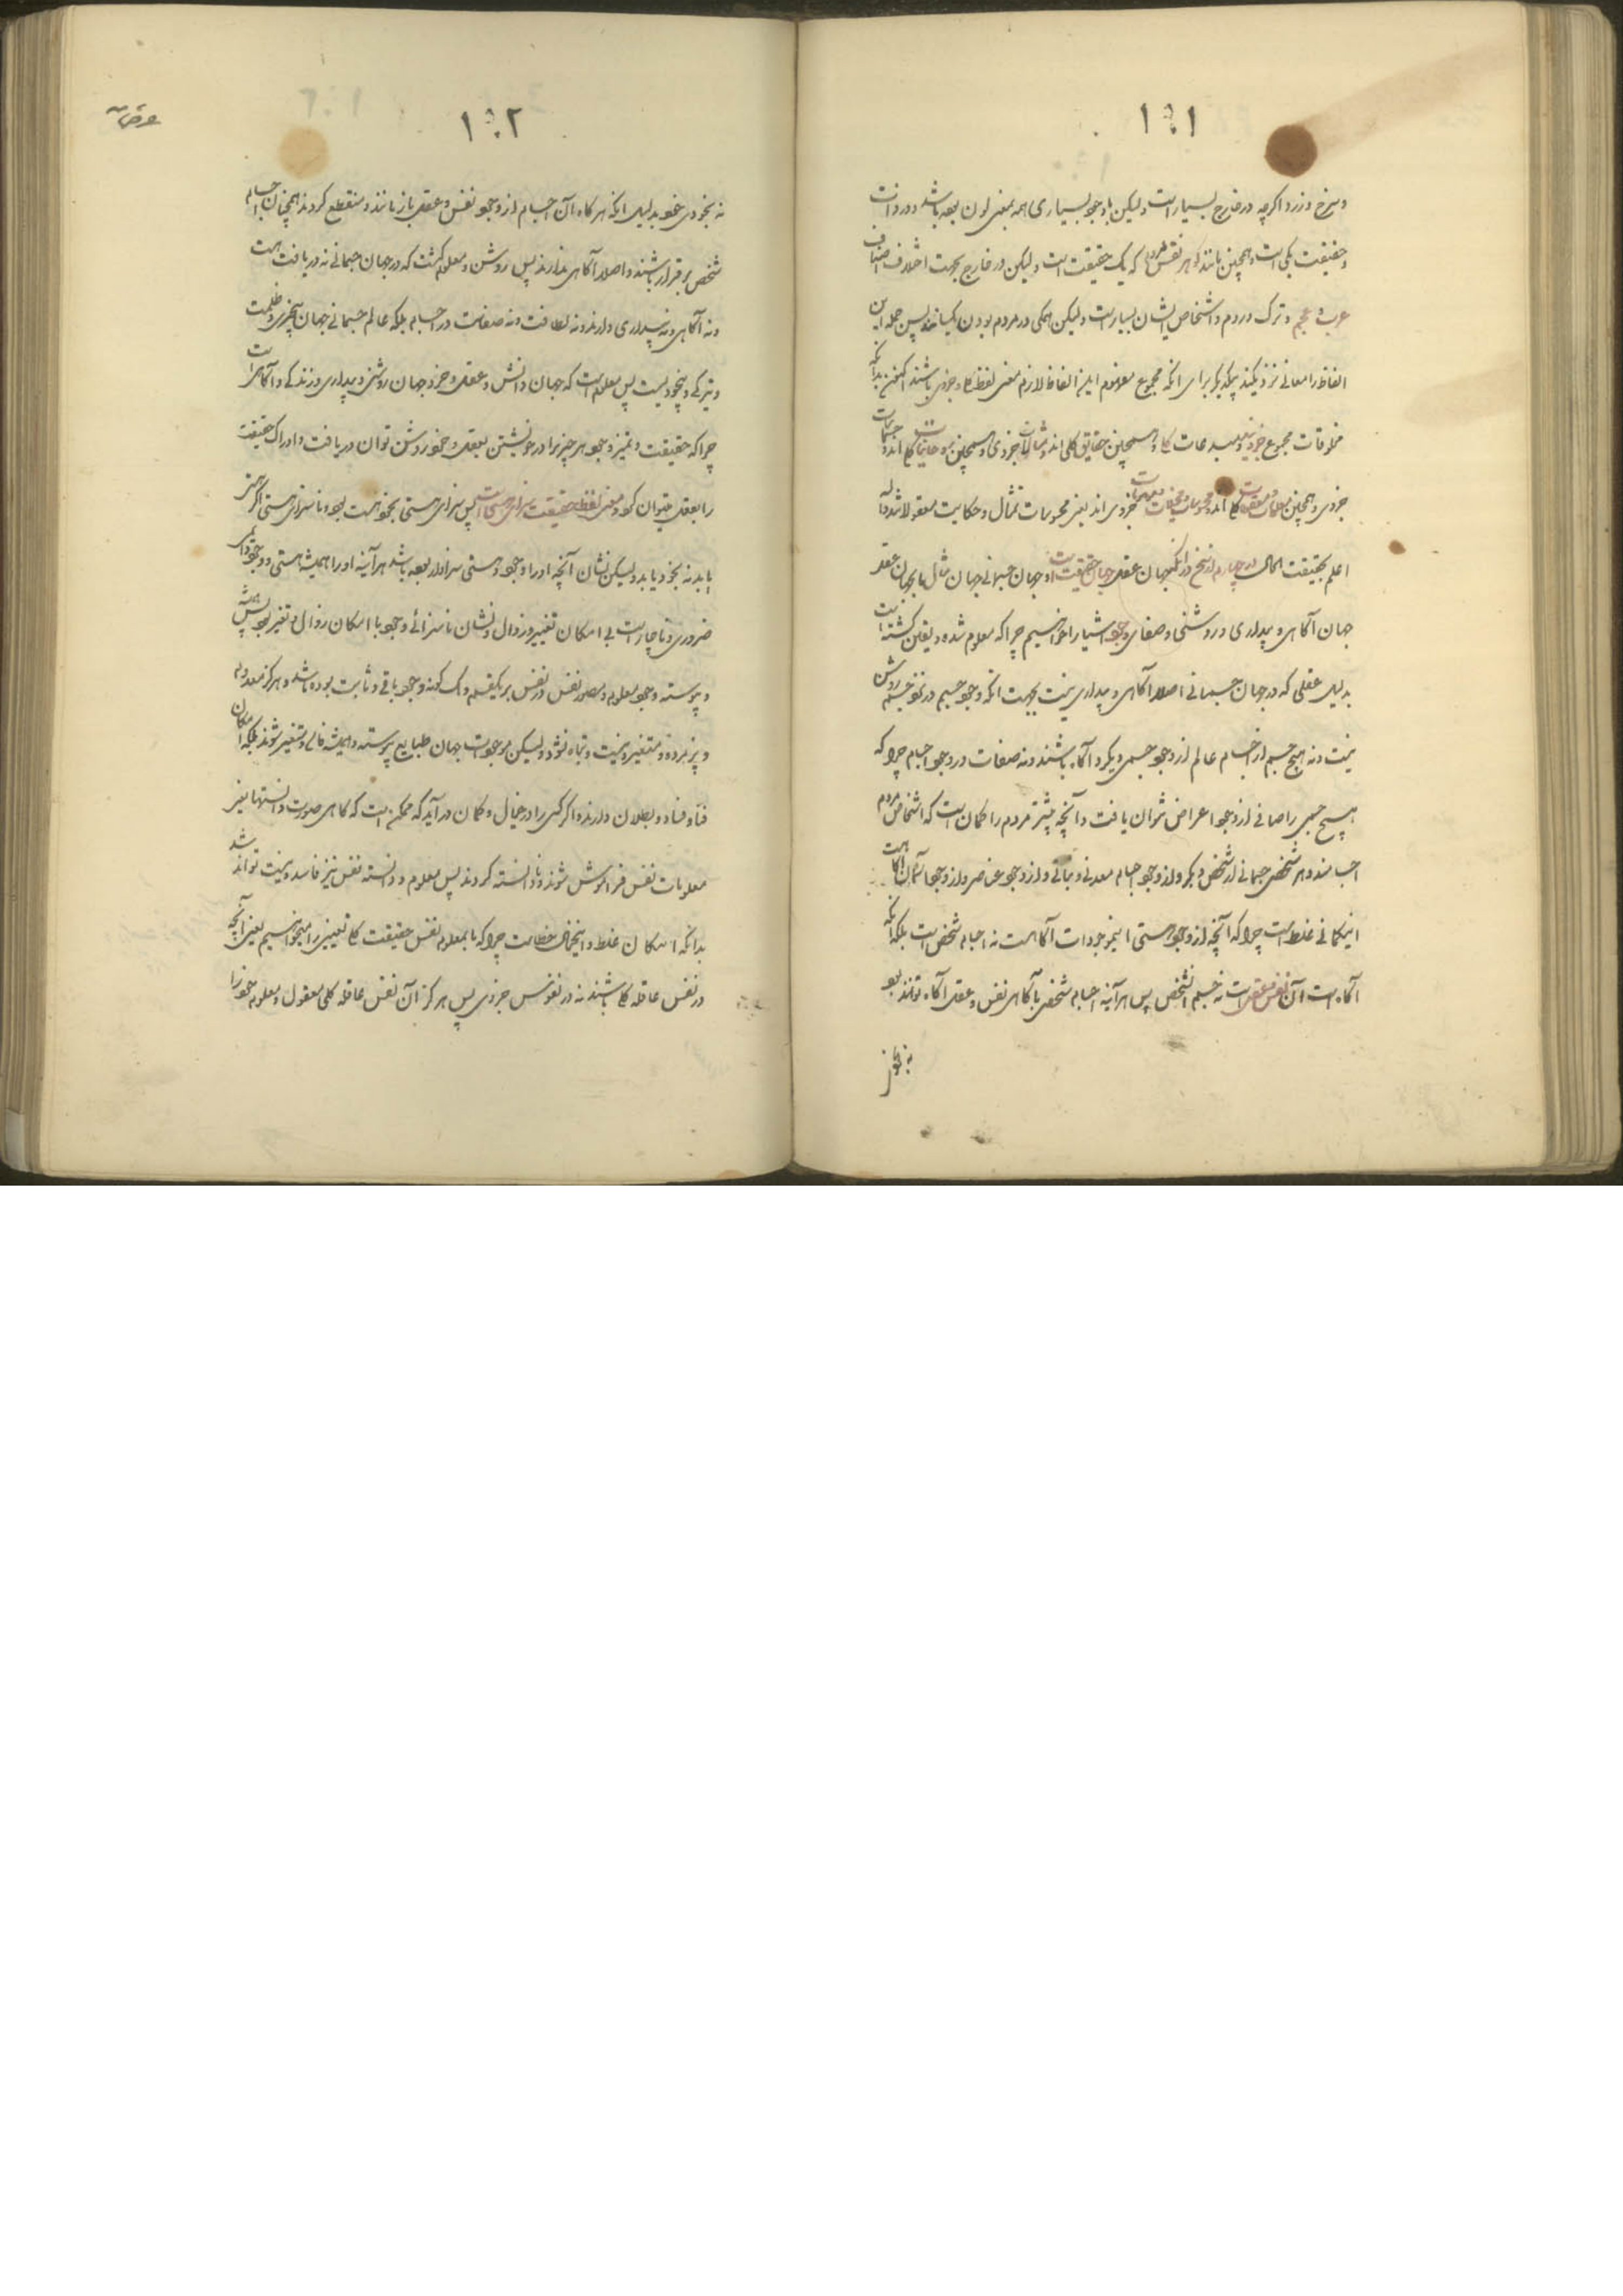 ۱۰۱
وسرخ و زرد اگرچه در خارج بسیار است ولیکن باوجود بسیاری همه بمعنی لون بوده باشد و در ذات
و حقیقت یکی است و همچنین مانند کوهر نفس مردم که یک حقیقت است ولیکن در خارج بجهت اختلاف اصناف
عرب و عجم و ترک و روم و اشخاص ایشان بسیار است ولیکن همکی در مردم بودن یکسانند پس جمله این
الفاظ را معانی نزدیکند بیکدیکر برای انکه مجموع مفهوم این الفاظ لازم معنی لفظ کلی و جزوی باشند اکنون بدانکه
مخلوقات مجموع جزویند و مبدعات کلی و همچنین حقایق کلی اند و مثالات جزوی و همچنین روحانیات کلی اند و جسمانیات
جزوی و همچنین معقولات کلی اند و محسوسات جزوی اند یعنی محسوسات تمثال و حکایت معقولاتند والله
اعلم بحقیقت الحال در چهارم از سخن در انکه جهان عقل جهان حقیقت است و جهان جسمانی جهان مثال ما بجهان عقل
جهان آکاهی و بیداری و روشنی و صفای وجود اشیا را خواهیم چرا که معلوم شده و یقین کشته است
بدلیل عقلی که در جهان جسمانی اصلا آکاهی و بیداری نیست بجهت انکه وجود جسم در نفس جسم روشن
نیست و نه هیچ جسم از اجسام عالم از وجود جسمی دیکر آکاه باشند و نه صفات در وجود اجسام چرا که
هیچ جسمی را صافی از وجود اعراض نتوان یافت و آنچه بیشتر مردم را کمان است که اشخاص مردم
اجسامند و هر شخص جسمانی از شخص دیکر و از وجود اجسام معدنی و نباتی و از وجود عناصر و از وجود آسمان آکاه است
اینکمانی غلط است چرا که آنچه از وجود و هستی اینموجودات آکاهست نه اجسام شخص است بلکه آنکه
آکاه است آن نفس و عقل است نه جسم الشخص پس هرآینه اجسام شخص بآکاهی نفس و عقل آکاه توانند بود
نه بخود
۱۰۲
نه بخودی خود بدلیل انکه هرکاه آن اجسام از وجود نفس و عقل باز مانند و منقطع کردند همچنان اجسام
شخص برقرار باشند و اصلا آکاهی ندارند پس روشن و معلوم کشت که در جهان جسمانی نه دریافت است
و نه آکاهی و نه بیداری دارند و نه لطافت و نه صفاست در اجسام بلکه عالم جسمانی جهان بیخبری و ظلمت
و تیرکی و بیخودیست پس معلوم است که جهان دانش و عقل و خرد جهان روشنی و بیداری و زندکی و آکاهی است
چرا که حقیقت و تمیز وجود هر چیز را در خویشتن بعقل و خود روشن توان دریافت و ادراک حقیقت
را بعقل میتوان کرد و معنی لفظ حقیقت سزای هستی است پس سزای هستی بخود هست بود و ناسزای هستی اکر هستی
یابد نه بخود یابد ولیکن نشان آنچه او را وجود و هستی سزاوار بوده باشد هرآینه او را همیشه هستی و وجود دائمی
ضروری و ناچار است بی امکان تغییر و زوال و نشان ناسزائی وجود با امکان زوال و تغیر بود پس همیشه
و پیوسته وجود معلوم و مصور نفس در نفس بر یکقسم و یک کونه وجود باقی و ثابت بوده باشد و هرکز معدوم
و پژمرده و متغیر و نیست و تباه نشود ولیکن موجودات جهان طبایع پیوسته و همیشه فانی و متغیر شوند بلکه امکان
فنا و فساد و بطلان دارند و اکر کسی را در خیال و کمان درآید که ممکن است که کاهی صورت دانستها یعنی
معلومات نفس فراموش شوند و نادانسته کردند پس معلوم و دانسته نفس نیز فاسد و نیست تواند شد
بدانکه امکان غلط و اینخیال خطاست چرا که ما بمعلوم نفس حقیقت کلی تعیینی را میخواهیم یعنی آنچه
در نفس عاقله کلی باشند نه در نفوس جزوی پس هرکز آن نفس عاقله کلی معقول و معلوم خود را